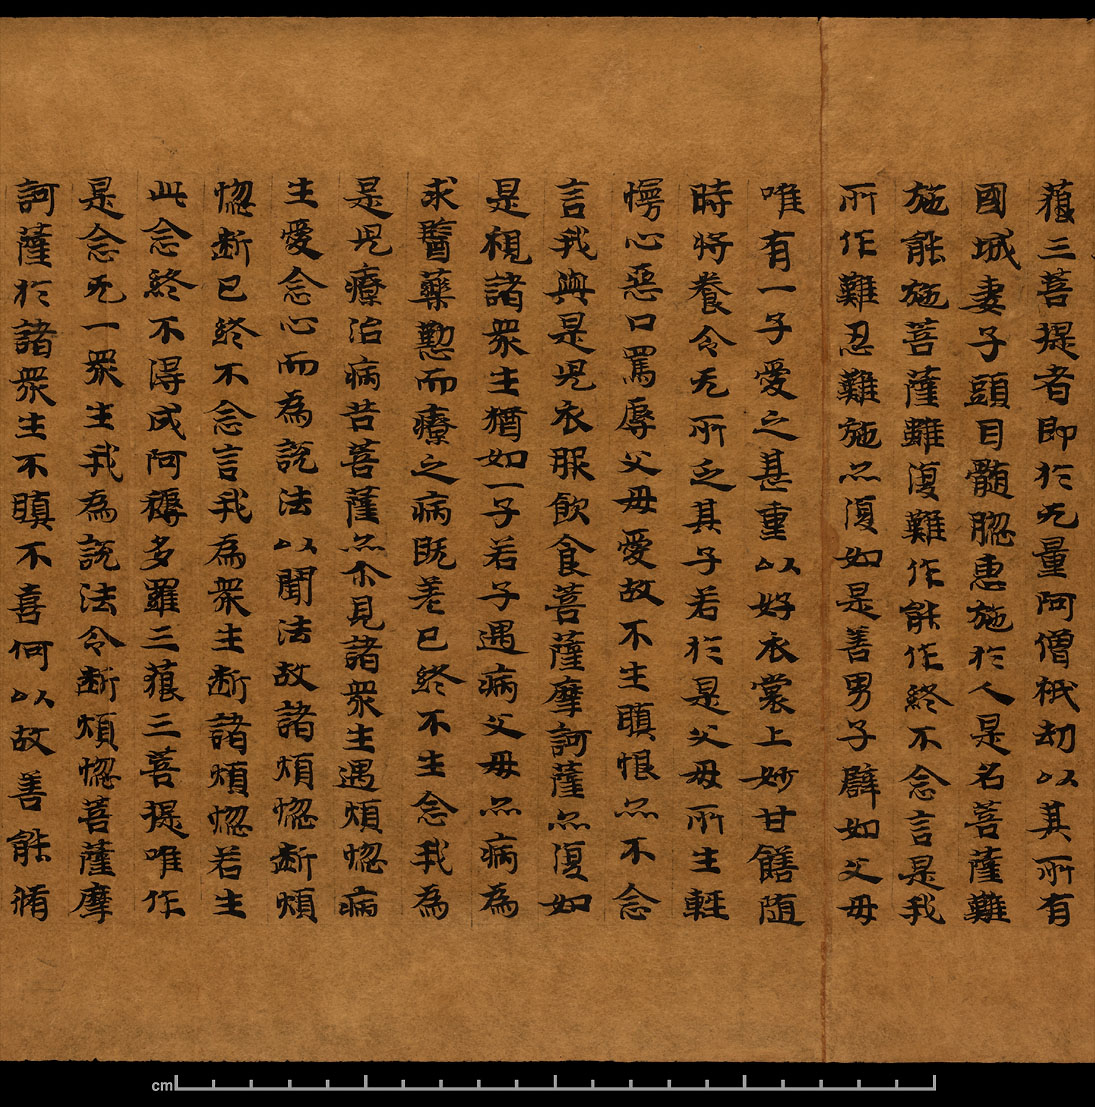 藐三菩提者即於无量阿僧祇劫以其所有
國城妻子頭目髓惱惠施於人是名菩薩難
施能施菩薩雖復難作能作終不念言是我
所作難忍難施亦復如是善男子辟如父母
唯有一子愛之甚重以好衣裳上妙甘饍随
時將養令无所乏其子若於是父母所生輕
慢心惡口罵辱父母愛故不生瞋恨亦不念
言我與是児衣服飲食菩薩摩訶薩亦復如
是視諸衆生猶如一子若子遇病父母亦病為
求醫藥懃而療之病既差已終不生念我為
是児療治病苦菩薩亦尒見諸衆生遇煩惱病
生愛念心而為說法以聞法故諸煩惱斷煩
惱斷已終不念言我為衆生斷諸煩惱若生
此念終不得成阿耨多羅三藐三菩提唯作
是念无一衆生我為說法令斷煩惱菩薩摩
訶薩於諸衆生不瞋不喜何以故善能脩